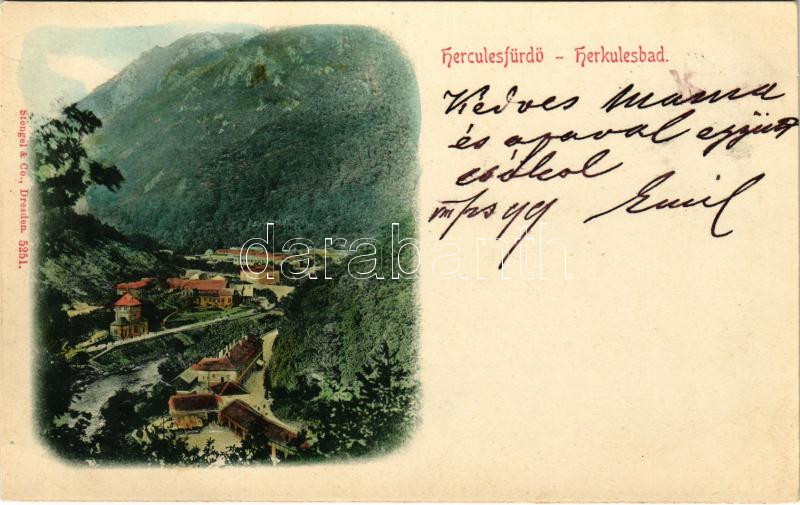 Herculesfürdö - Herkulesbad.
Kedves Mama
és apával együtt
csókol
Emil
Stengel & Co., Dresden. 5251.
darabanth